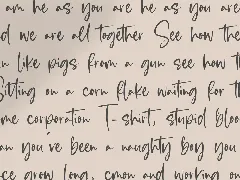 am he as you are he as you are
d we are all together See how the
n like pigs from a gun see how th
Sitting on a corn flake waiting for th
me corporation T-shirt, stupid bloo
an you've been a naughty boy you
ce grow long, cmon and working on